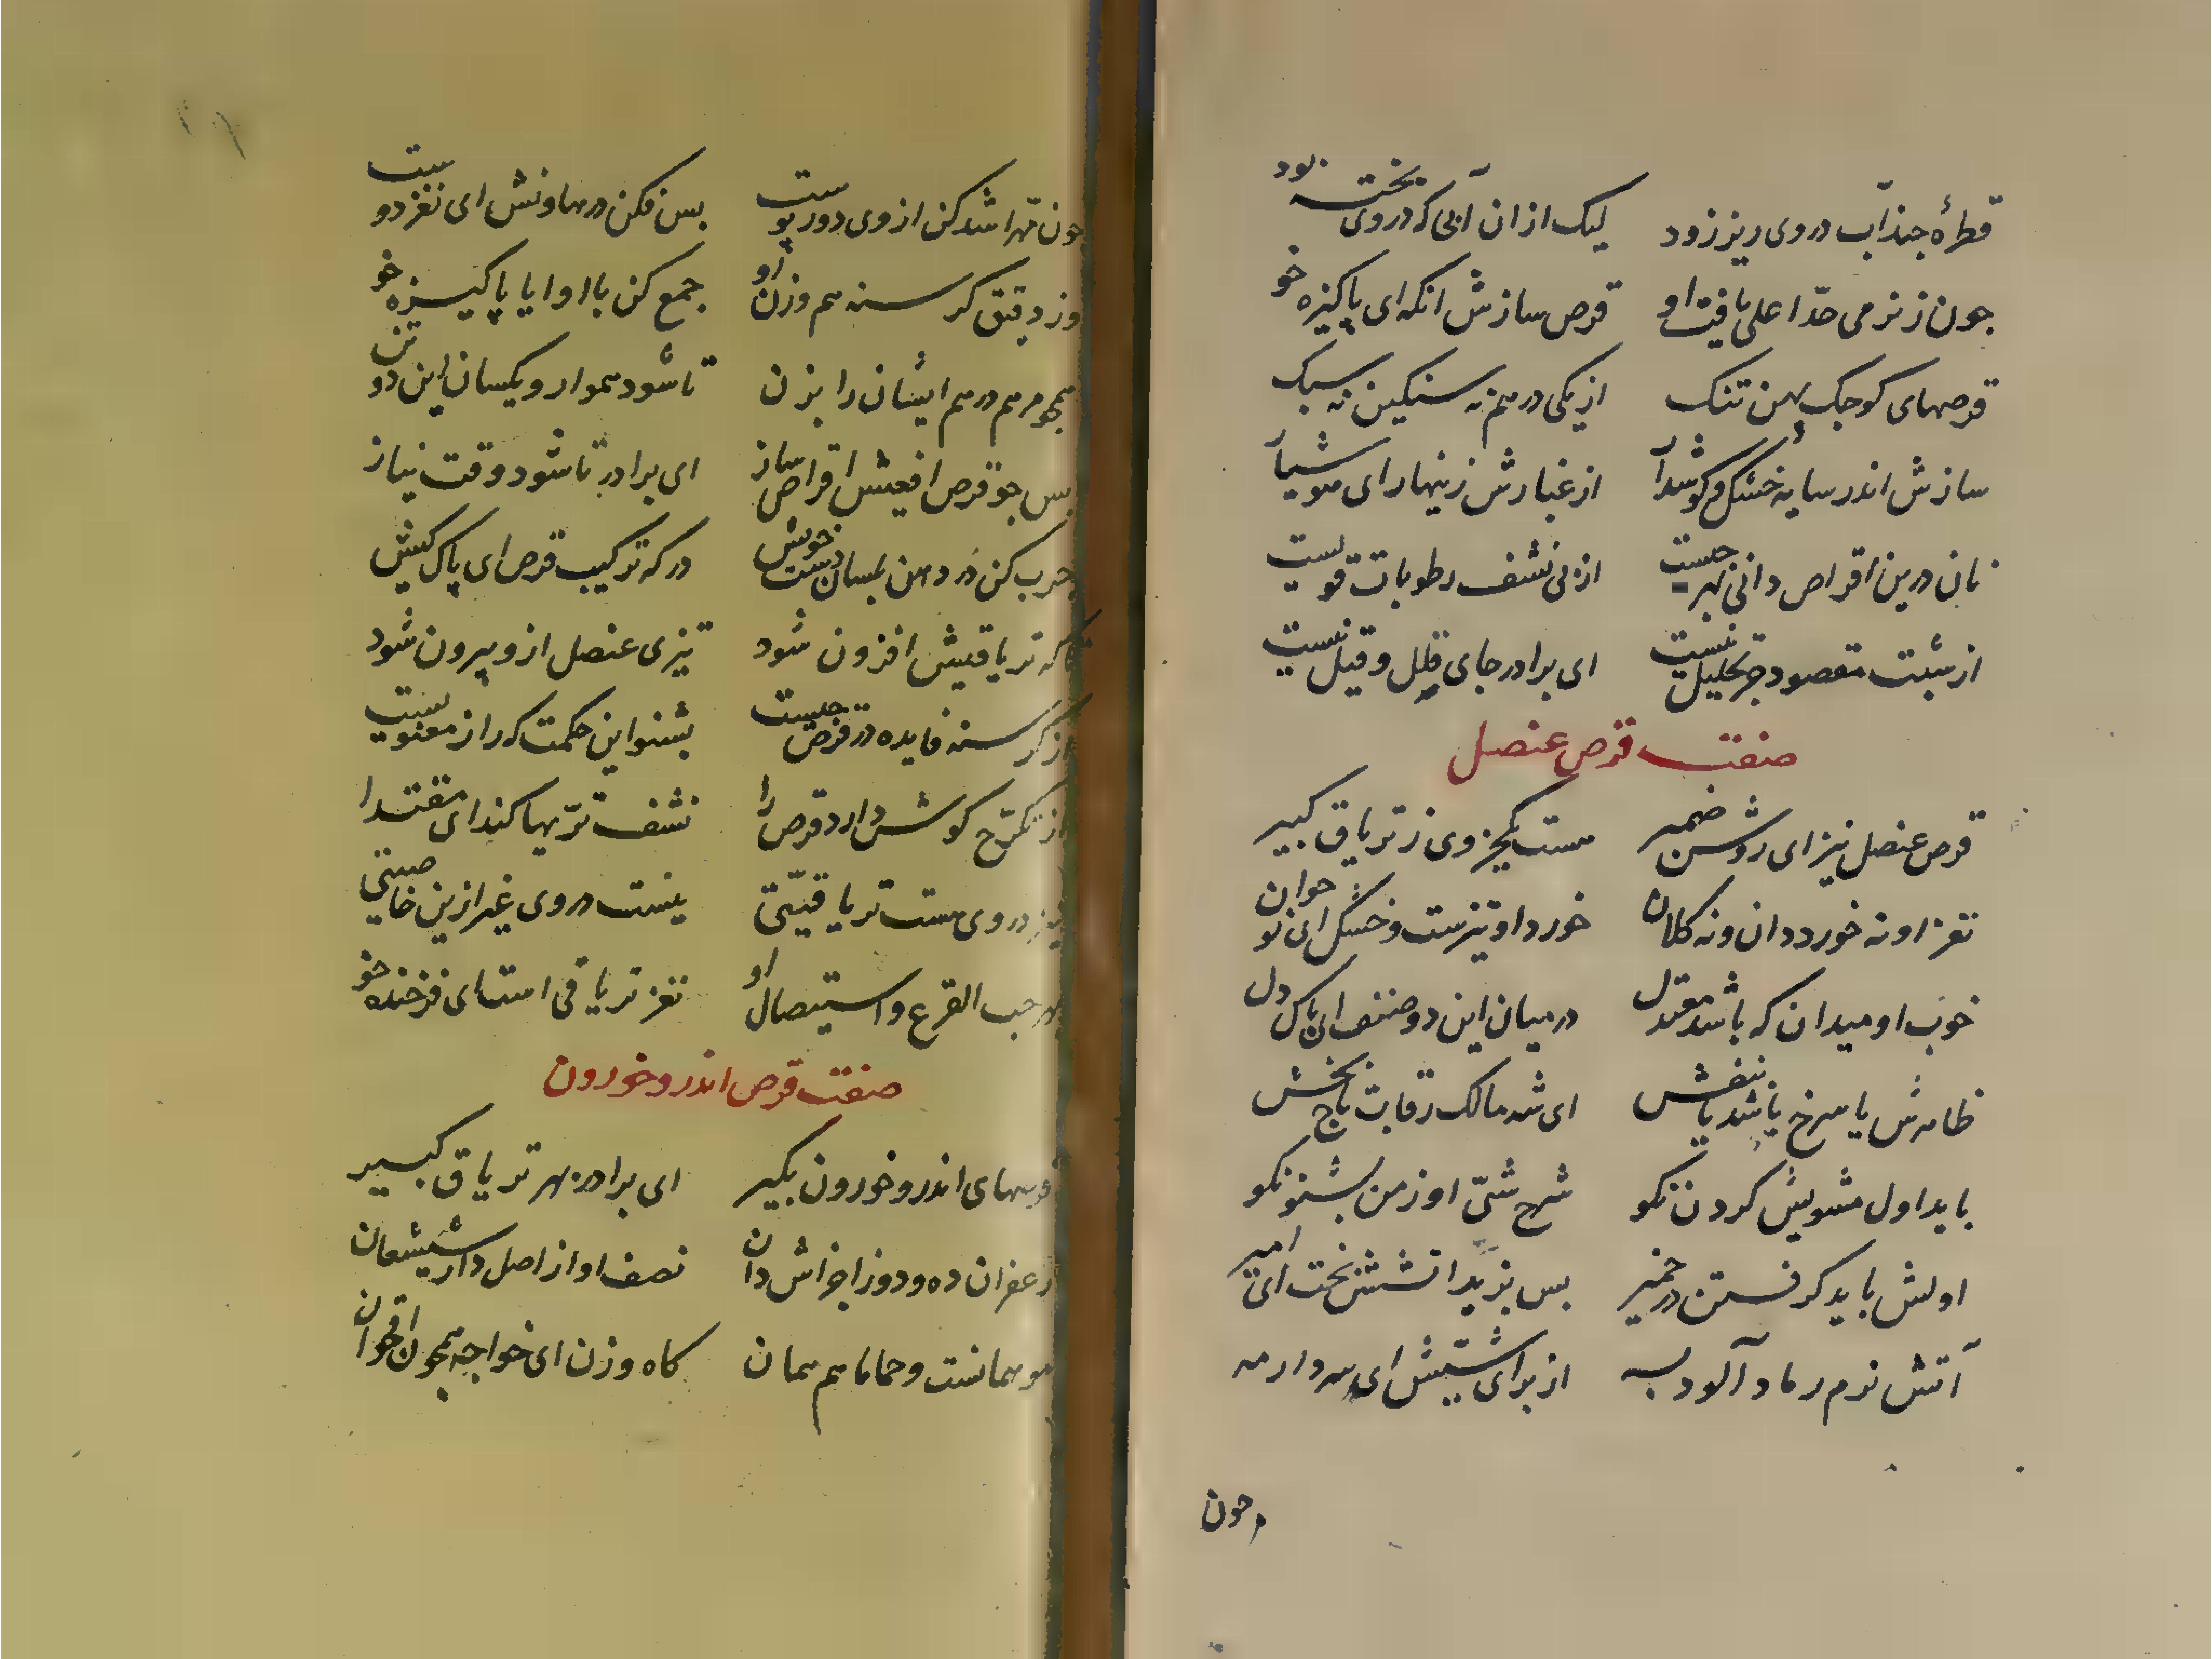 قطرهٔ چند آب در وی ریز زود لیک از ان آبی که در وی پخته بود
چون ز نرمی حدّ اعلی یافت او قرص سازش انکه ای پاکیزه خو
قرصهای کوچک پهن تنک از یکی درهم نه سنکین نه سبک
سازش اندر سایه خشک و کوش دار از غبارش زینهار ای هوشیار
نان درین اقراص دانی بهر چیست از پی نشف رطوبات قویست
از شبت مقصود جز تحلیل نیست ای برادر جای قال و قیل نیست
صفت قرص عنصل
قرص عنصل نیز ای روشن ضمیر هست یکجزوی ز تریاق کبیر
نغز او نه خورد دان و نه کلان خورد او تیزست و خشک ای نوجوان
خوب او میدان که باشد معتدل در میان این دو صنف ای پاک دل
ظاهرش یا سرخ باشد یا بنفش ای شه مالک رقاب تاج بخش
باید اول مشویش کردن نکو شرح شیّ او ز من بشنو نکو
اولش باید کرفتن در خمیر پس بزیر اتشش پخت ای امیر
آتش نرم رماد آلود به از برای شیّش ای سردار مه
و چون
چون مهرا شد کن از وی دور پوست پس فکن در هاونش ای نغز دوست
وز دقیق کرسنه هم وزن او جمع کن با او ایا پاکیزه خو
همچو مرهم درهم ایشان را بزن تا شود هموار و یکسان این دو تن
پس چو قرص افعیش اقراص ساز ای برادر تا شود وقت نیاز
چرب کن در دهن بلسان دست خویش در که ترکیب قرص ای پاک کیش
تا که تریاقیتش افزون شود تیزی عنصل ازو بیرون شود
از کرسنه فایده در قرص چیست بشنو این حکمت که راز معنویست
از تکرّج کوش دارد قرص را نشف تریها کند ای مقتدا
نیز در وی هست تریاقیّتی نیست در وی غیر ازین خاصیتی
بهر حب القرع و استیصال او نغز تریاقی است ای فرخنده خو
صفت قرص اندروخورون
قرصهای اندروخورون بکیر ای برادر بهر تریاق کبیر
زعفران ده و دو ز اجزاش دان نصف او از اصل دارشیشعان
مو همانست و حماما هم همان کاه وزن ای خواجه همچون اقحوان